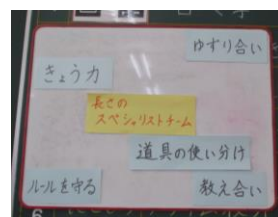 ゆずり合い
きょう力
長さの
スペシャリストチーム
道具の使い分け
ルールを守る
教え合い
6